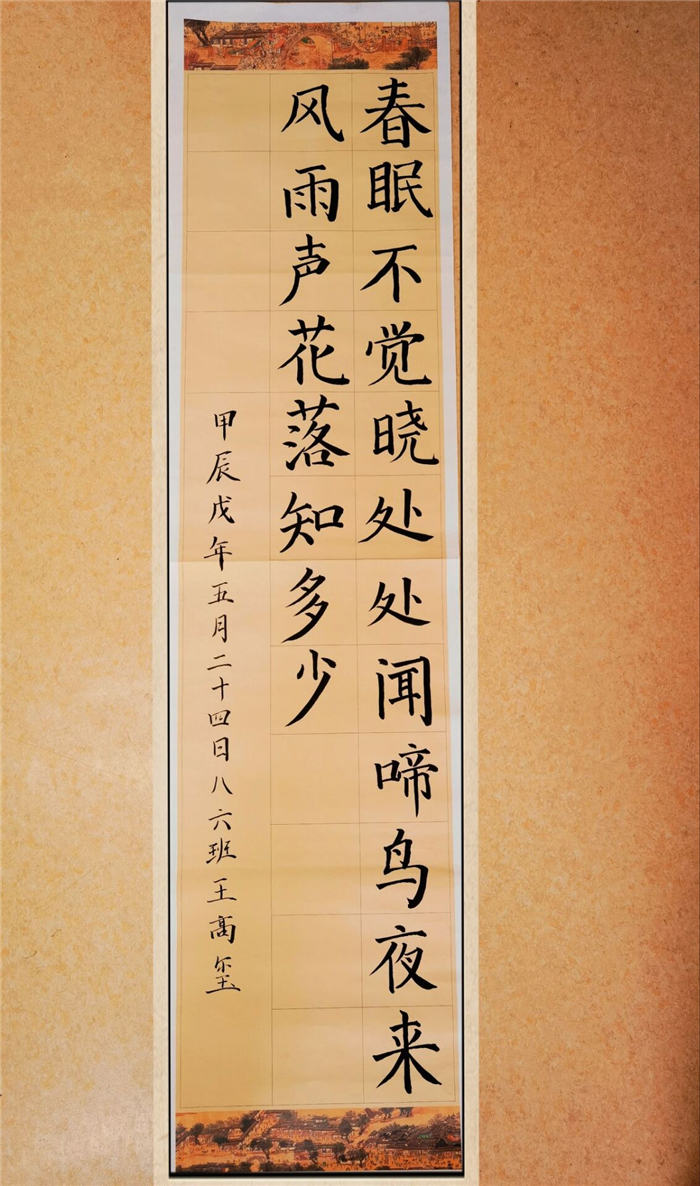 春眠不觉晓处处闻啼鸟夜来
风雨声花落知多少
甲辰戊年五月二十四日八六班王高玺